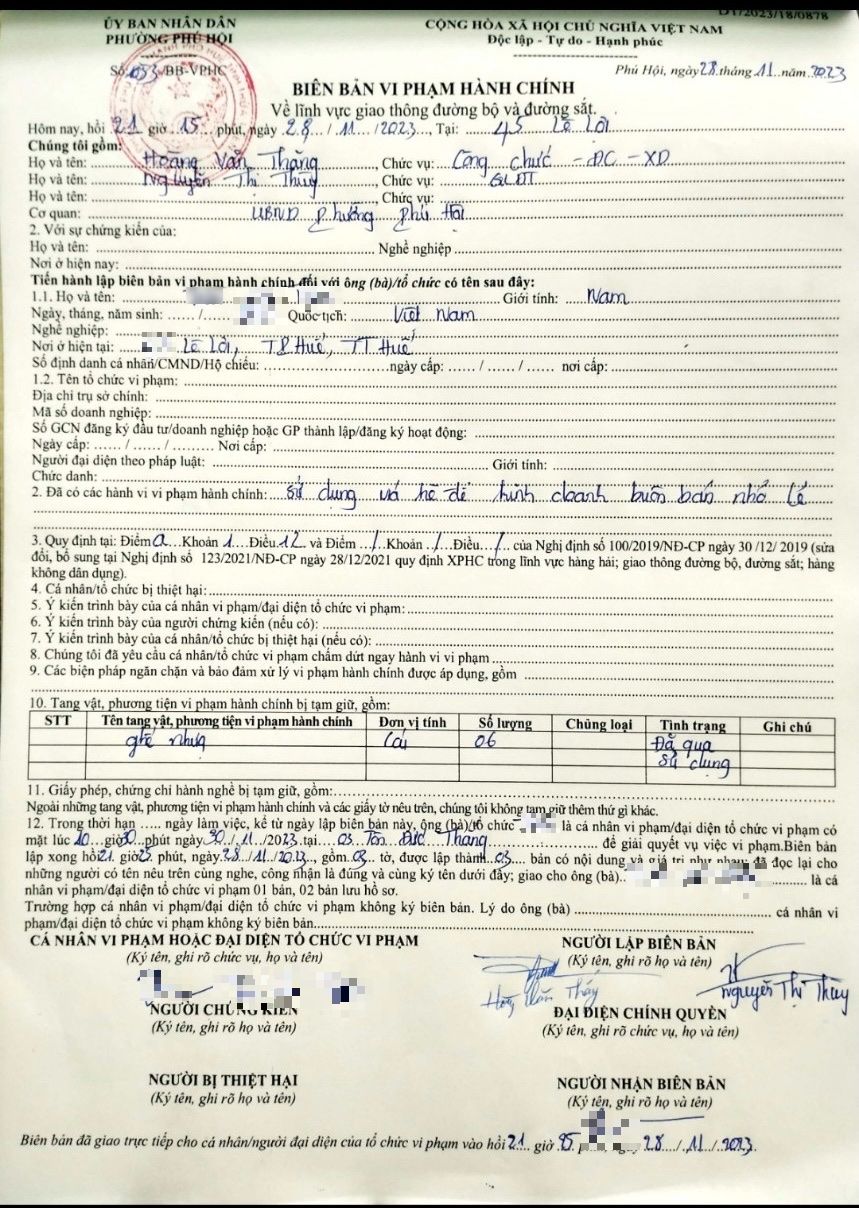 DT/2023/18/0878
ỦY BAN NHÂN DÂN
PHƯỜNG PHÚ HỘI
CỘNG HÒA XÃ HỘI CHỦ NGHĨA VIỆT NAM
Độc lập - Tự do - Hạnh phúc
Số /BB-VPHC
Phú Hội, ngày 28 tháng 11 năm 2023
BIÊN BẢN VI PHẠM HÀNH CHÍNH
Về lĩnh vực giao thông đường bộ và đường sắt.
Hôm nay, hồi 21 giờ 15 phút, ngày 28 / 11 /2023, Tại: 45 Lê Lợi
Chúng tôi gồm:
Họ và tên: Hoàng Văn Thắng, Chức vụ: Công chức - ĐC - XD
Họ và tên: Nguyễn Thị Thùy, Chức vụ:
Họ và tên: , Chức vụ:
Cơ quan: UBND Phường Phú Hội
2. Với sự chứng kiến của:
Họ và tên: Nghề nghiệp
Nơi ở hiện nay:
Tiến hành lập biên bản vi phạm hành chính đối với ông (bà)/tổ chức có tên sau đây:
1.1. Họ và tên: Giới tính: Nam
Ngày, tháng, năm sinh: ...... /...... Quốc tịch: Việt Nam
Nghề nghiệp:
Nơi ở hiện tại: Lê Lợi, TP Huế, TT Huế
Số định danh cá nhân/CMND/Hộ chiếu: ngày cấp: ...... / ...... / ...... nơi cấp:
1.2. Tên tổ chức vi phạm:
Địa chỉ trụ sở chính:
Mã số doanh nghiệp:
Số GCN đăng ký đầu tư/doanh nghiệp hoặc GP thành lập/đăng ký hoạt động:
Ngày cấp: ...... / ...... / ......... Nơi cấp:
Người đại diện theo pháp luật: Giới tính:
Chức danh:
2. Đã có các hành vi vi phạm hành chính: sử dụng vỉa hè để kinh doanh buôn bán nhỏ lẻ
3. Quy định tại: Điểm a Khoản 1 Điều 12 và Điểm / Khoản / Điều / của Nghị định số 100/2019/NĐ-CP ngày 30 /12/ 2019 (sửa
đổi, bổ sung tại Nghị định số 123/2021/NĐ-CP ngày 28/12/2021 quy định XPHC trong lĩnh vực hàng hải; giao thông đường bộ, đường sắt; hàng
không dân dụng).
4. Cá nhân/tổ chức bị thiệt hại:
5. Ý kiến trình bày của cá nhân vi phạm/đại diện tổ chức vi phạm:
6. Ý kiến trình bày của người chứng kiến (nếu có):
7. Ý kiến trình bày của cá nhân/tổ chức bị thiệt hại (nếu có):
8. Chúng tôi đã yêu cầu cá nhân/tổ chức vi phạm chấm dứt ngay hành vi vi phạm
9. Các biện pháp ngăn chặn và bảo đảm xử lý vi phạm hành chính được áp dụng, gồm
10. Tang vật, phương tiện vi phạm hành chính bị tạm giữ, gồm:
STT Tên tang vật, phương tiện vi phạm hành chính Đơn vị tính Số lượng Chủng loại Tình trạng Ghi chú
ghế nhựa Cái 06 Đã qua
sử dụng
11. Giấy phép, chứng chỉ hành nghề bị tạm giữ, gồm:
Ngoài những tang vật, phương tiện vi phạm hành chính và các giấy tờ nêu trên, chúng tôi không tạm giữ thêm thứ gì khác.
12. Trong thời hạn ..... ngày làm việc, kể từ ngày lập biên bản này, ông (bà)/tổ chức là cá nhân vi phạm/đại diện tổ chức vi phạm có
mặt lúc 10 giờ 30 phút ngày 30 / 11 /2023 tại 03 Tôn Đức Thắng để giải quyết vụ việc vi phạm. Biên bản
lập xong hồi 21 giờ 25 phút, ngày 28 / 11 / 2023, gồm 03 tờ, được lập thành 03 bản có nội dung và giá trị như nhau; đã đọc lại cho
những người có tên nêu trên cùng nghe, công nhận là đúng và cùng ký tên dưới đây; giao cho ông (bà) là cá
nhân vi phạm/đại diện tổ chức vi phạm 01 bản, 02 bản lưu hồ sơ.
Trường hợp cá nhân vi phạm/đại diện tổ chức vi phạm không ký biên bản. Lý do ông (bà) cá nhân vi
phạm/đại diện tổ chức vi phạm không ký biên bản
CÁ NHÂN VI PHẠM HOẶC ĐẠI DIỆN TỔ CHỨC VI PHẠM
(Ký tên, ghi rõ chức vụ, họ và tên)
NGƯỜI LẬP BIÊN BẢN
(Ký tên, ghi rõ họ và tên)
Nguyễn Thị Thùy
NGƯỜI CHỨNG KIẾN
(Ký tên, ghi rõ họ và tên)
ĐẠI DIỆN CHÍNH QUYỀN
(Ký tên, ghi rõ chức vụ, họ và tên)
NGƯỜI BỊ THIỆT HẠI
(Ký tên, ghi rõ họ và tên)
NGƯỜI NHẬN BIÊN BẢN
(Ký tên, ghi rõ họ và tên)
Biên bản đã giao trực tiếp cho cá nhân/người đại diện của tổ chức vi phạm vào hồi 21 giờ 28 / 11 / 2023.